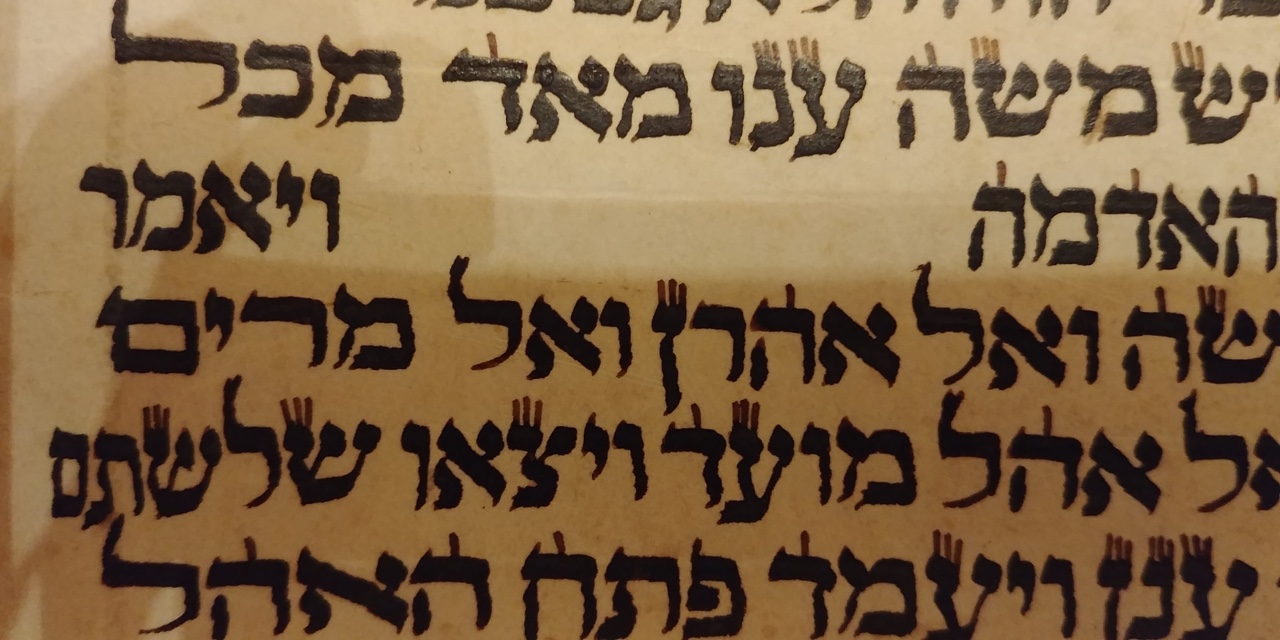 יש משה ענו מאד מכל
האדמה ויאמר
שה ואל אהרן ואל מרים
אל אהל מועד ויצאו שלשתם
ענן ויעמד פתח האהל